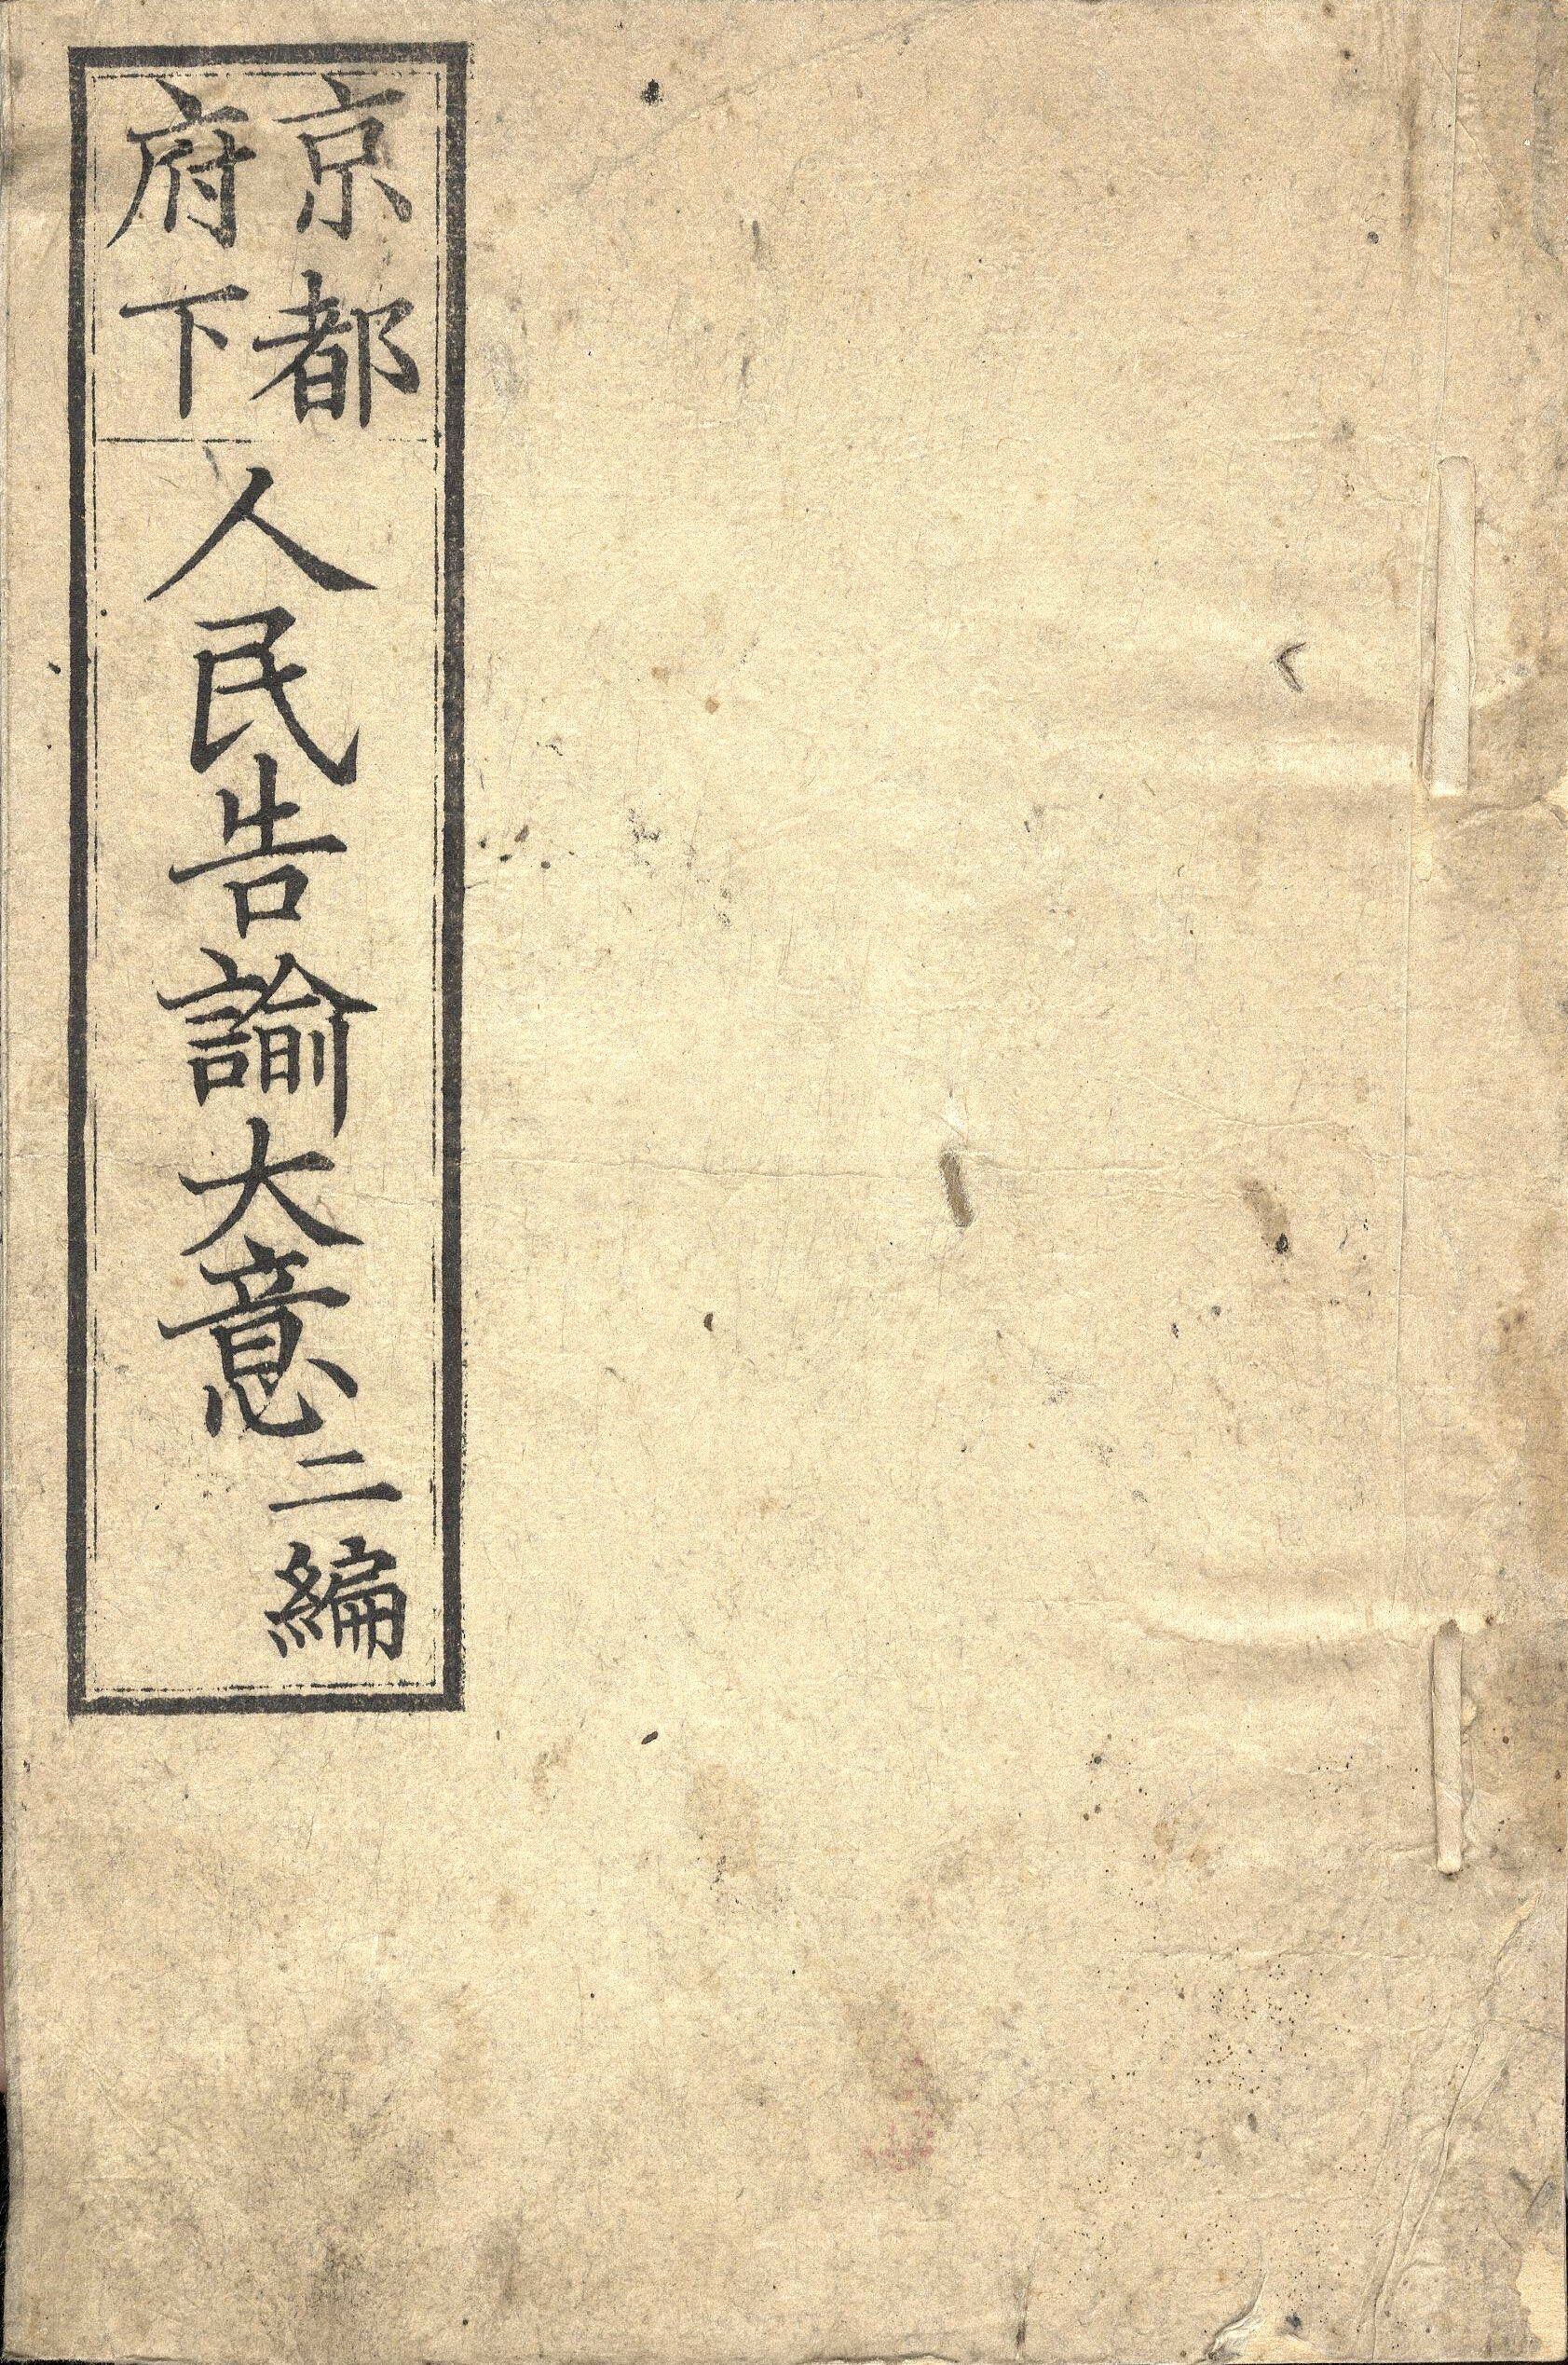 京都
府下
人民告諭大意
二編